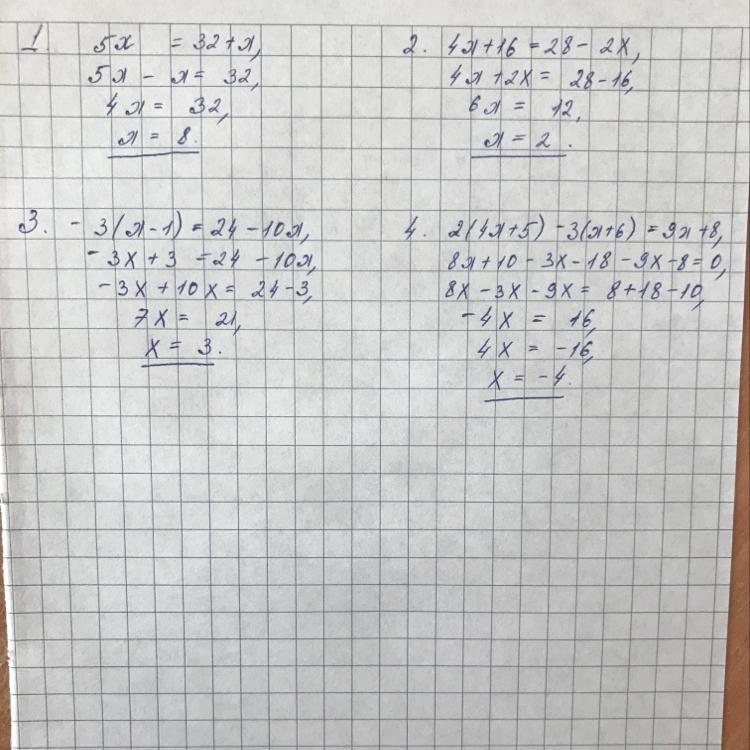 1. 5x = 32+x,
5x - x = 32,
4x = 32,
x = 8.
2. 4x+16 = 28 - 2x,
4x+2x = 28-16,
6x = 12,
x = 2.
3. -3(x-1) = 24-10x,
-3x+3 = 24-10x,
-3x+10x = 24-3,
7x = 21,
x = 3.
4. 2(4x+5) -3(x+6) = 9x+8,
8x+10-3x-18-9x-8=0,
8x-3x-9x = 8+18-10,
-4x = 16,
4x = -16,
x = -4.